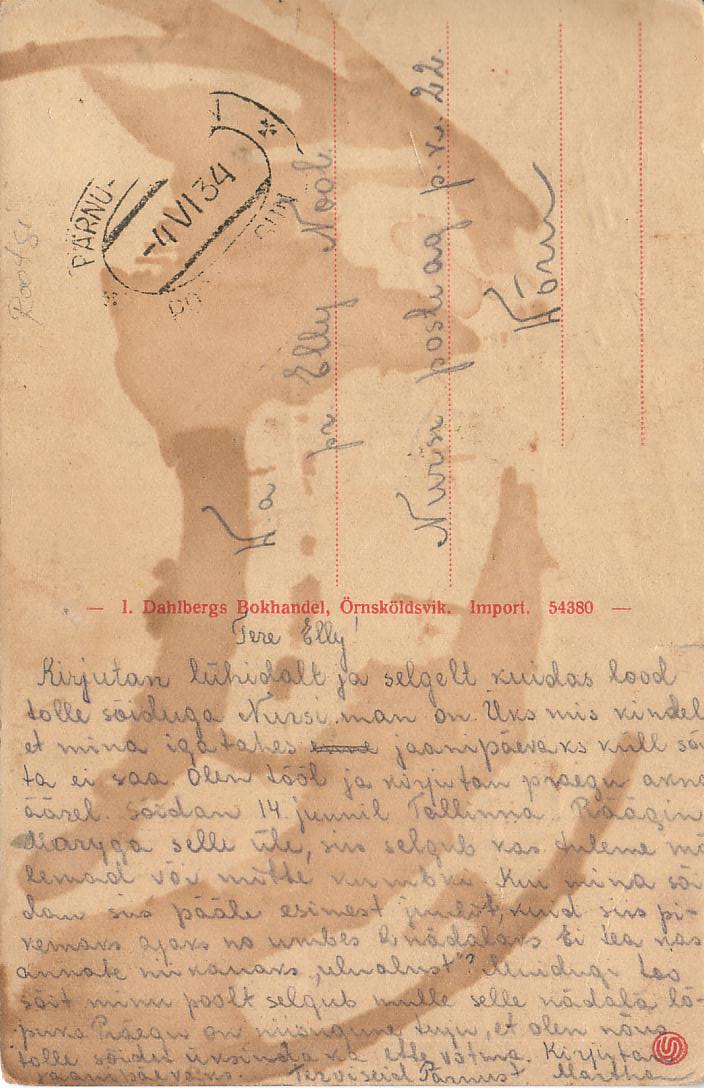 PÄRNU-
-4 VI 34
K.a
pr Elly Nool
Nursi postiag p.k. 22.
Võru
— I. Dahlbergs Bokhandel, Örnsköldsvik. Import. 54380 —
Tere Elly!
Kirjutan lühidalt ja selgelt kuidas lood
tolle sõiduga Nursi. man on. Üks mis kindel
et mina igatahes jaanipäevaks küll sõi
ta ei saa Olen tööl ja kirjutan praegu akna
äärel. Sõidan 14. juunil Tallinna. Räägin
Maryga selle üle, siis selgub kas tuleme mõ
lemad või mitte kumbki Kui mina sõi
dan siis pääle esimest juulit, kuid siis pi-
kemaks ajaks no umbes 2 nädalaks Ei tea kas
annate nii kauaks „ulualust"? Muidugi too
sõit minu poolt selgub mulle selle nädala lõ-
puks Praegu on niisugune tuju, et olen nõus
tolle sõidu üksinda ka ette võtma. Kirjutan
jaanipäevaks. Terviseid Pärnust Martha